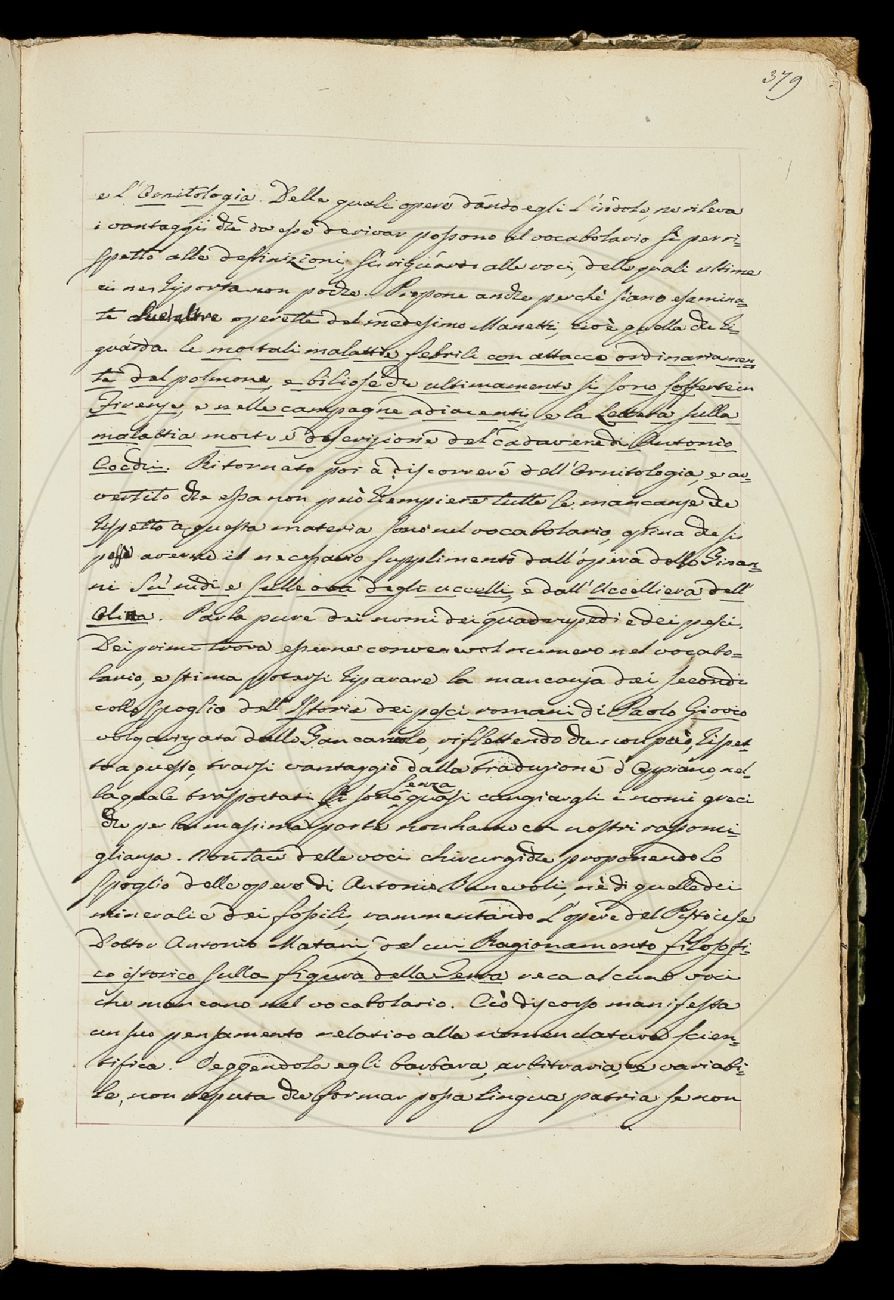 379
e l'Ornitologia. Delle quali opere dando egli l'indole, ne rileva
i vantaggii che da esse derivar possono al vocabolario sì per ri=
spetto alle definizioni, sì riguardo alle voci, delle quali ultime
ei ne riporta non poche. Propone anche perchè siano esamina=
te due altre operette del medesimo Manetti, cioè quella che ri=
guarda le mortali malattie febrili con attacco ordinariamen=
te del polmone, e biliose che ultimamente si sono sofferte in
Firenze, e nelle campagne adiacenti, e la Lettera sulla
malattia morte e descrizione del cadavere di Antonio
Cocchi. Ritornato poi a discorrere dell'Ornitologia, e av=
vertito che essa non può riempiere tutte le mancanze che
rispetto a questa materia sono nel vocabolario, opina che si
possa averne il necessario supplimento dall'opera dello Zinan=
ni Su' nidi e sulle ova degli uccelli, e dall'Uccelliera dell'
Olina. Parla pure dei nomi dei quadrupedi e dei pesci.
Dei primi trova esserne convenevol numero nel vocabo=
lario, e stima potersi riparare la mancanza dei secondi
collo spoglio dell'Istoria dei pesci romani di Paolo Giovio
volgarizzata dallo Zancaruolo, riflettendo che non può, rispet=
to a questo, trarsi vantaggio dalla traduzione d'Oppiano, nel=
la quale trasportati si sono senza quasi cangiargli i nomi greci
che per la massima parte non hanno con nostri rassomi
glianza. Non tace delle voci chirurgiche proponendo lo
spoglio delle opere di Antonio Benevoli, nè di quelle dei
minerali e dei fossili, rammentando l'opere del Pistoiese
Dottor Antonio Matani, del cui Ragionamento filosofi=
co istorico sulla figura della Terra reca alcune voci
che mancano nel vocabolario. Ciò discorso manifesta
un suo pensamento relativo alla nomenclatura scien=
tifica. Veggendola egli barbara, arbitraria, e variabi=
le, non reputa che formar possa lingua patria se non